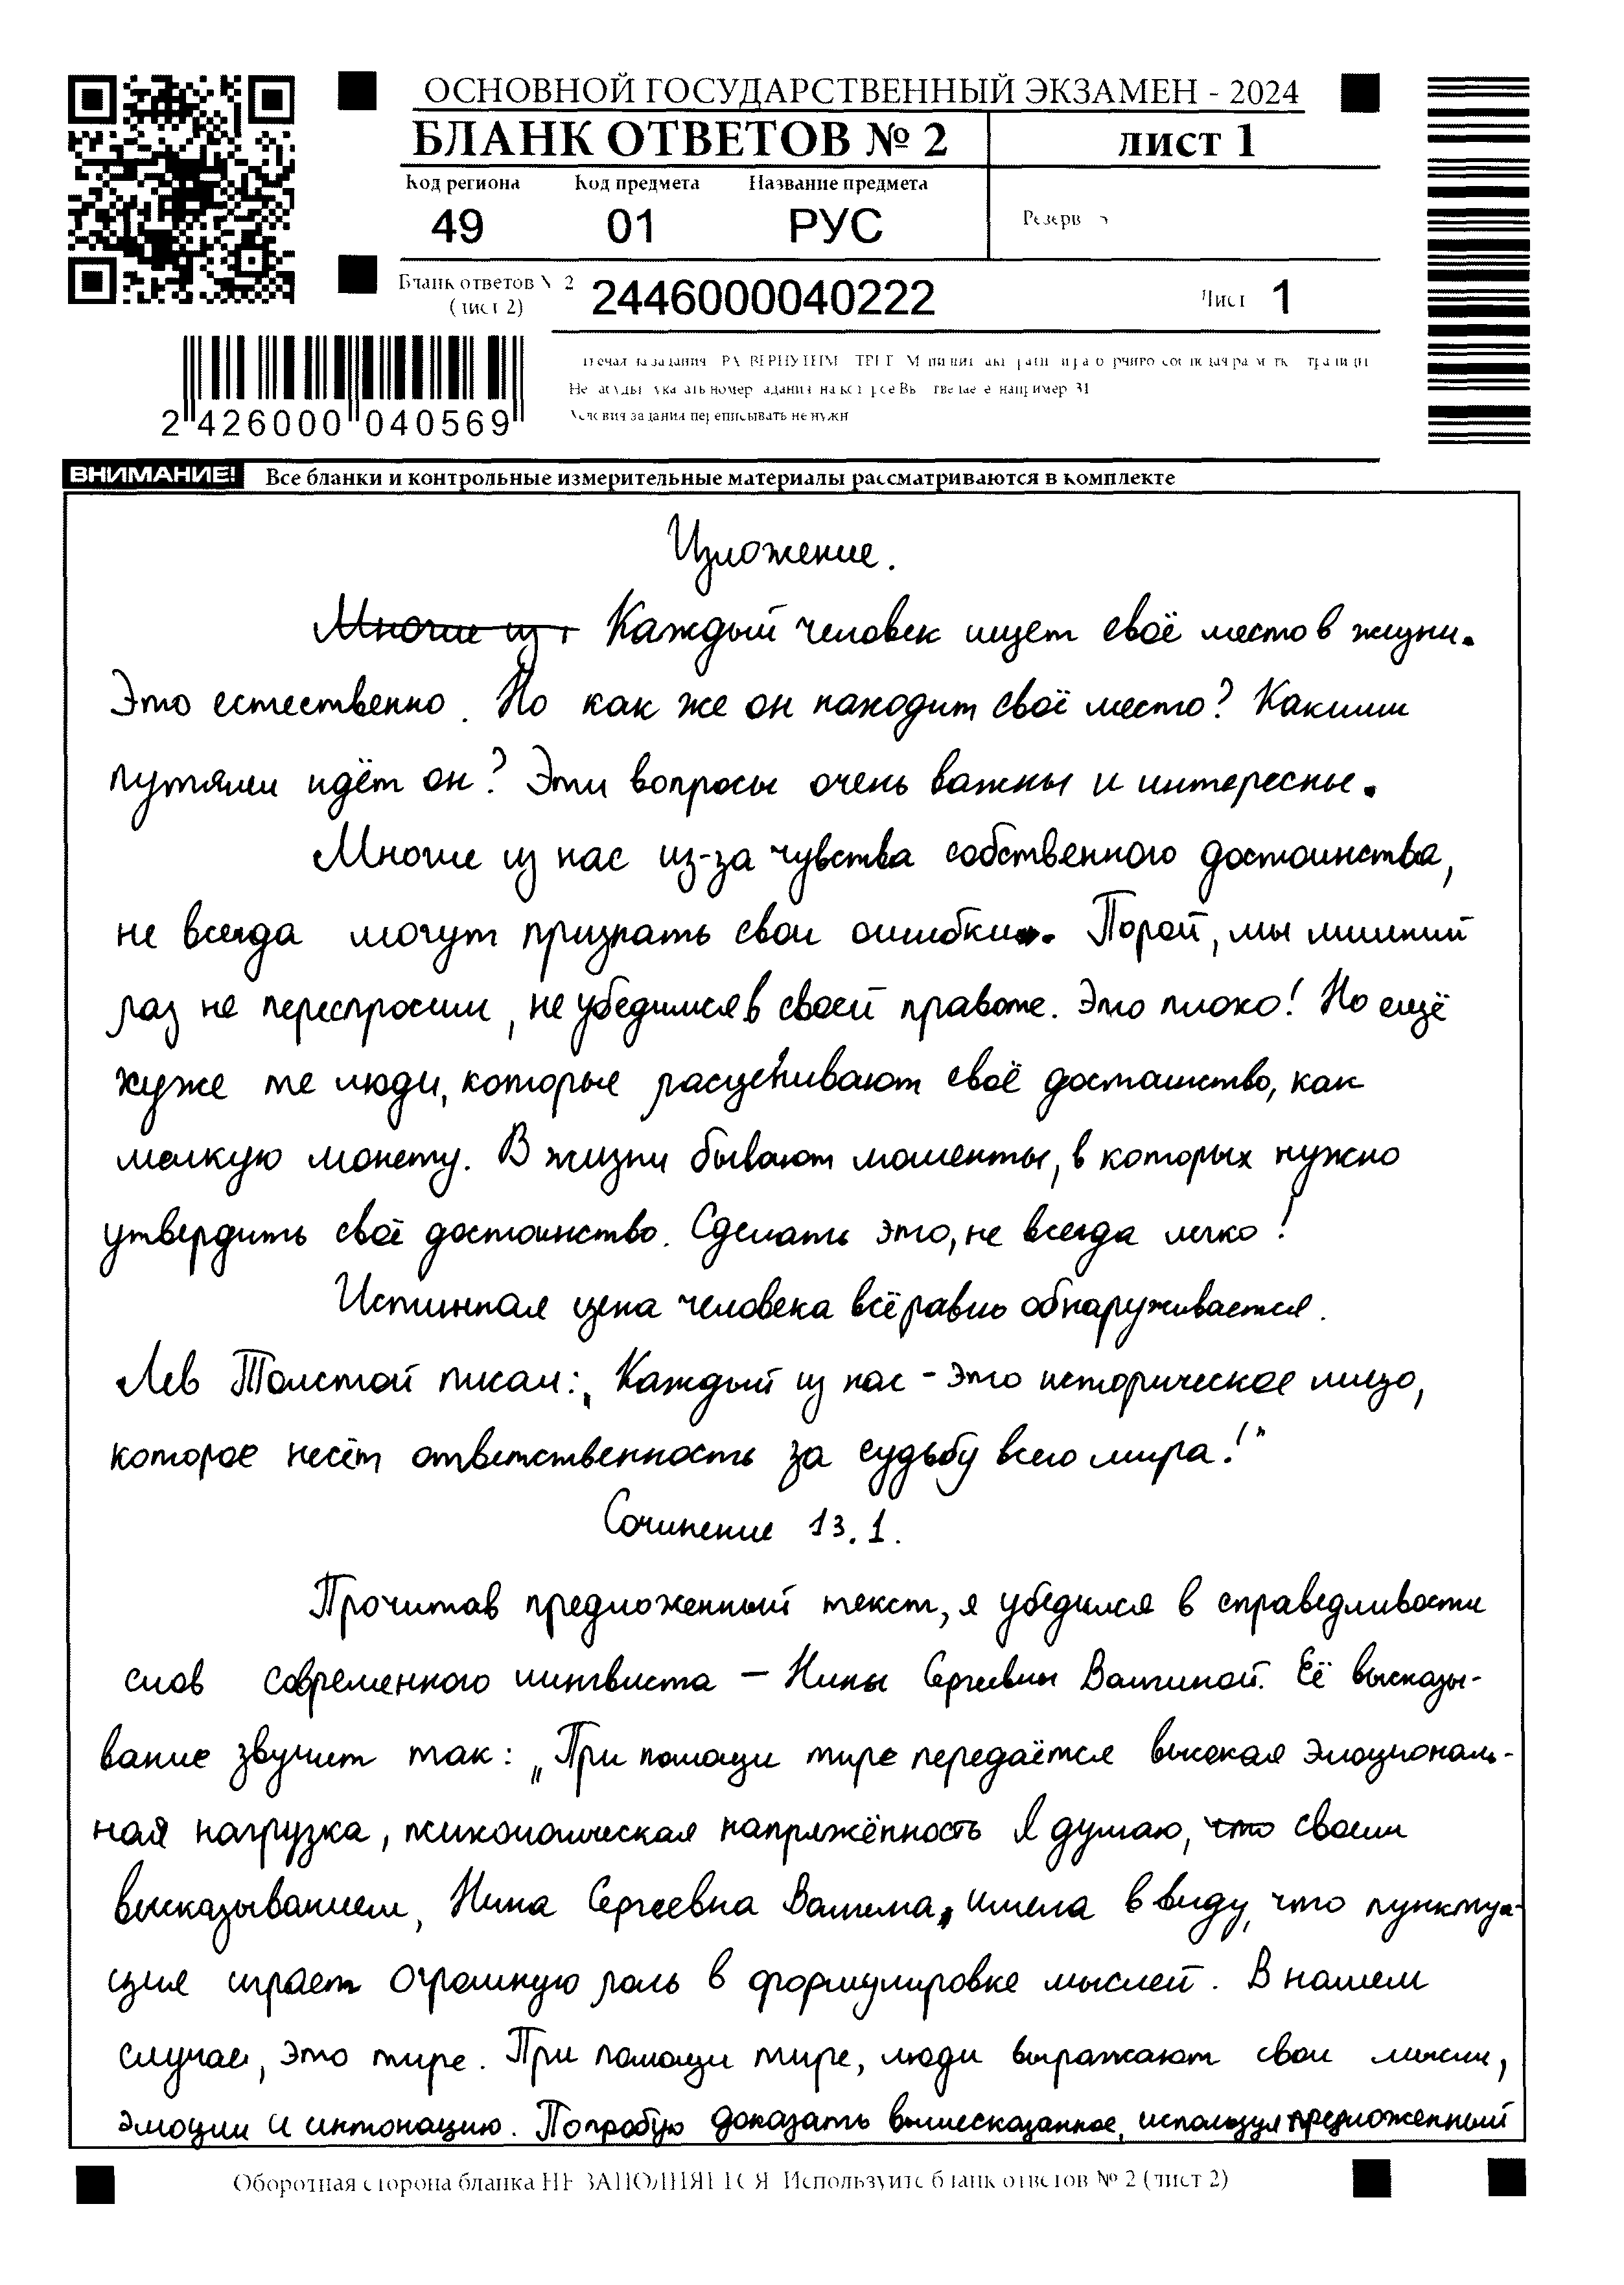 ОСНОВНОЙ ГОСУДАРСТВЕННЫЙ ЭКЗАМЕН - 2024
БЛАНК ОТВЕТОВ № 2
лист 1
Код региона Код предмета Название предмета
49 01 РУС
Резерв
Бланк ответов № 2
(лист 2)
2446000040222
Лист 1
2 426000 040569
Условия задания переписывать не нужн
ВНИМАНИЕ! Все бланки и контрольные измерительные материалы рассматриваются в комплекте
Изложение.
Многие из Каждый человек ищет своё место в жизни.
Это естественно. Но как же он находит своё место? Какими
путями идёт он? Эти вопросы очень важны и интересны.
Многие из нас из-за чувства собственного достоинства,
не всегда могут признать свои ошибки. Порой, мы лишний
раз не переспросим, не убедимся в своей правоте. Это плохо! Но ещё
хуже те люди, которые расценивают своё достоинство, как
мелкую монету. В жизни бывают моменты, в которых нужно
утвердить своё достоинство. Сделать это, не всегда легко!
Истинная цена человека всё равно обнаруживается.
Лев Толстой писал: „Каждый из нас - это историческое лицо,
которое несёт ответственность за судьбу всего мира!"
Сочинение 13.1.
Прочитав предложенный текст, я убедился в справедливости
слов современного лингвиста – Нины Сергеевны Валгиной. Её высказы-
вание звучит так: „При помощи тире передаётся высокая эмоциональ-
ная нагрузка, психологическая напряжённость Я думаю, что своим
высказыванием, Нина Сергеевна Валгина, имела в виду, что пунктуа-
ция играет огромную роль в формулировке мыслей. В нашем
случае, это тире. При помощи тире, люди выражают свои мысли,
эмоции и интонацию. Попробую доказать вышесказанное, используя предложенный
Оборотная сторона бланка НЕ ЗАПОЛНЯЕТСЯ Используйте бланк ответов № 2 (лист 2)